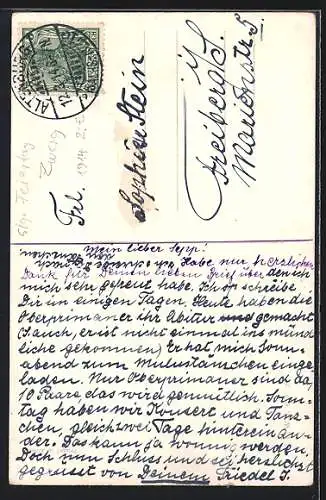 Frl.
Sophie Stein
Freiberg i/S.
Marienstr. 5
Mein lieber Sepp!
Habe nur herzlichen
Dank für Deinen lieben Brief über den ich
mich sehr gefreut habe. Ich schreibe
Dir in einigen Tagen. Heute haben die
Oberprimaner ihr Abitur gemacht
(J. auch, er ist nicht einmal ins münd-
liche gekommen) Er hat mich Sonn-
abend zum Mulustänzchen einge-
laden. Nur Oberprimaner sind da,
10 Paare, das wird gemütlich. Sonn-
tag haben wir Konzert und Tänz-
chen, gleich zwei Tage hintereinan-
der. Das kann ja wonnig werden.
Doch zum Schluss und sei herzlichst
gegrüsst von Deinem Friedel S.